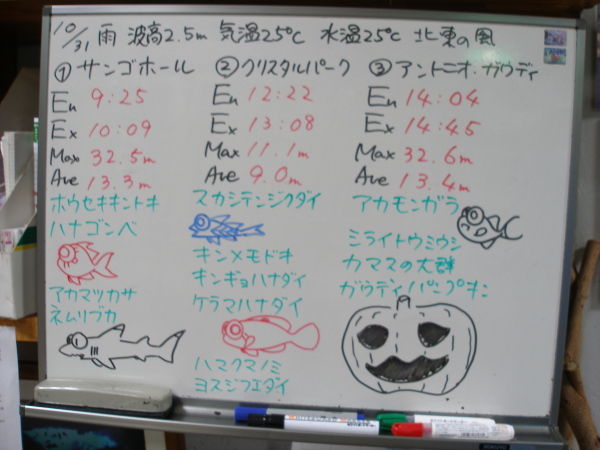 10/31 雨 波高2.5m 気温25℃ 水温25℃ 北東の風
① サンゴホール
En 9:25
Ex 10:09
Max 32.5m
Ave 13.3m
ホウセキキントキ
ハナゴンベ
アカマツカサ
ネムリブカ
② クリスタルパーク
En 12:22
Ex 13:08
Max 11.1m
Ave 9.0m
スカシテンジクダイ
キンメモドキ
キンギョハナダイ
ケラマハナダイ
ハマクマノミ
ヨスジフエダイ
③ アントニオ・ガウディ
En 14:04
Ex 14:45
Max 32.6m
Ave 13.4m
アカモンガラ
ミライトウミウシ
カマスの大群
ガウディパンプキン